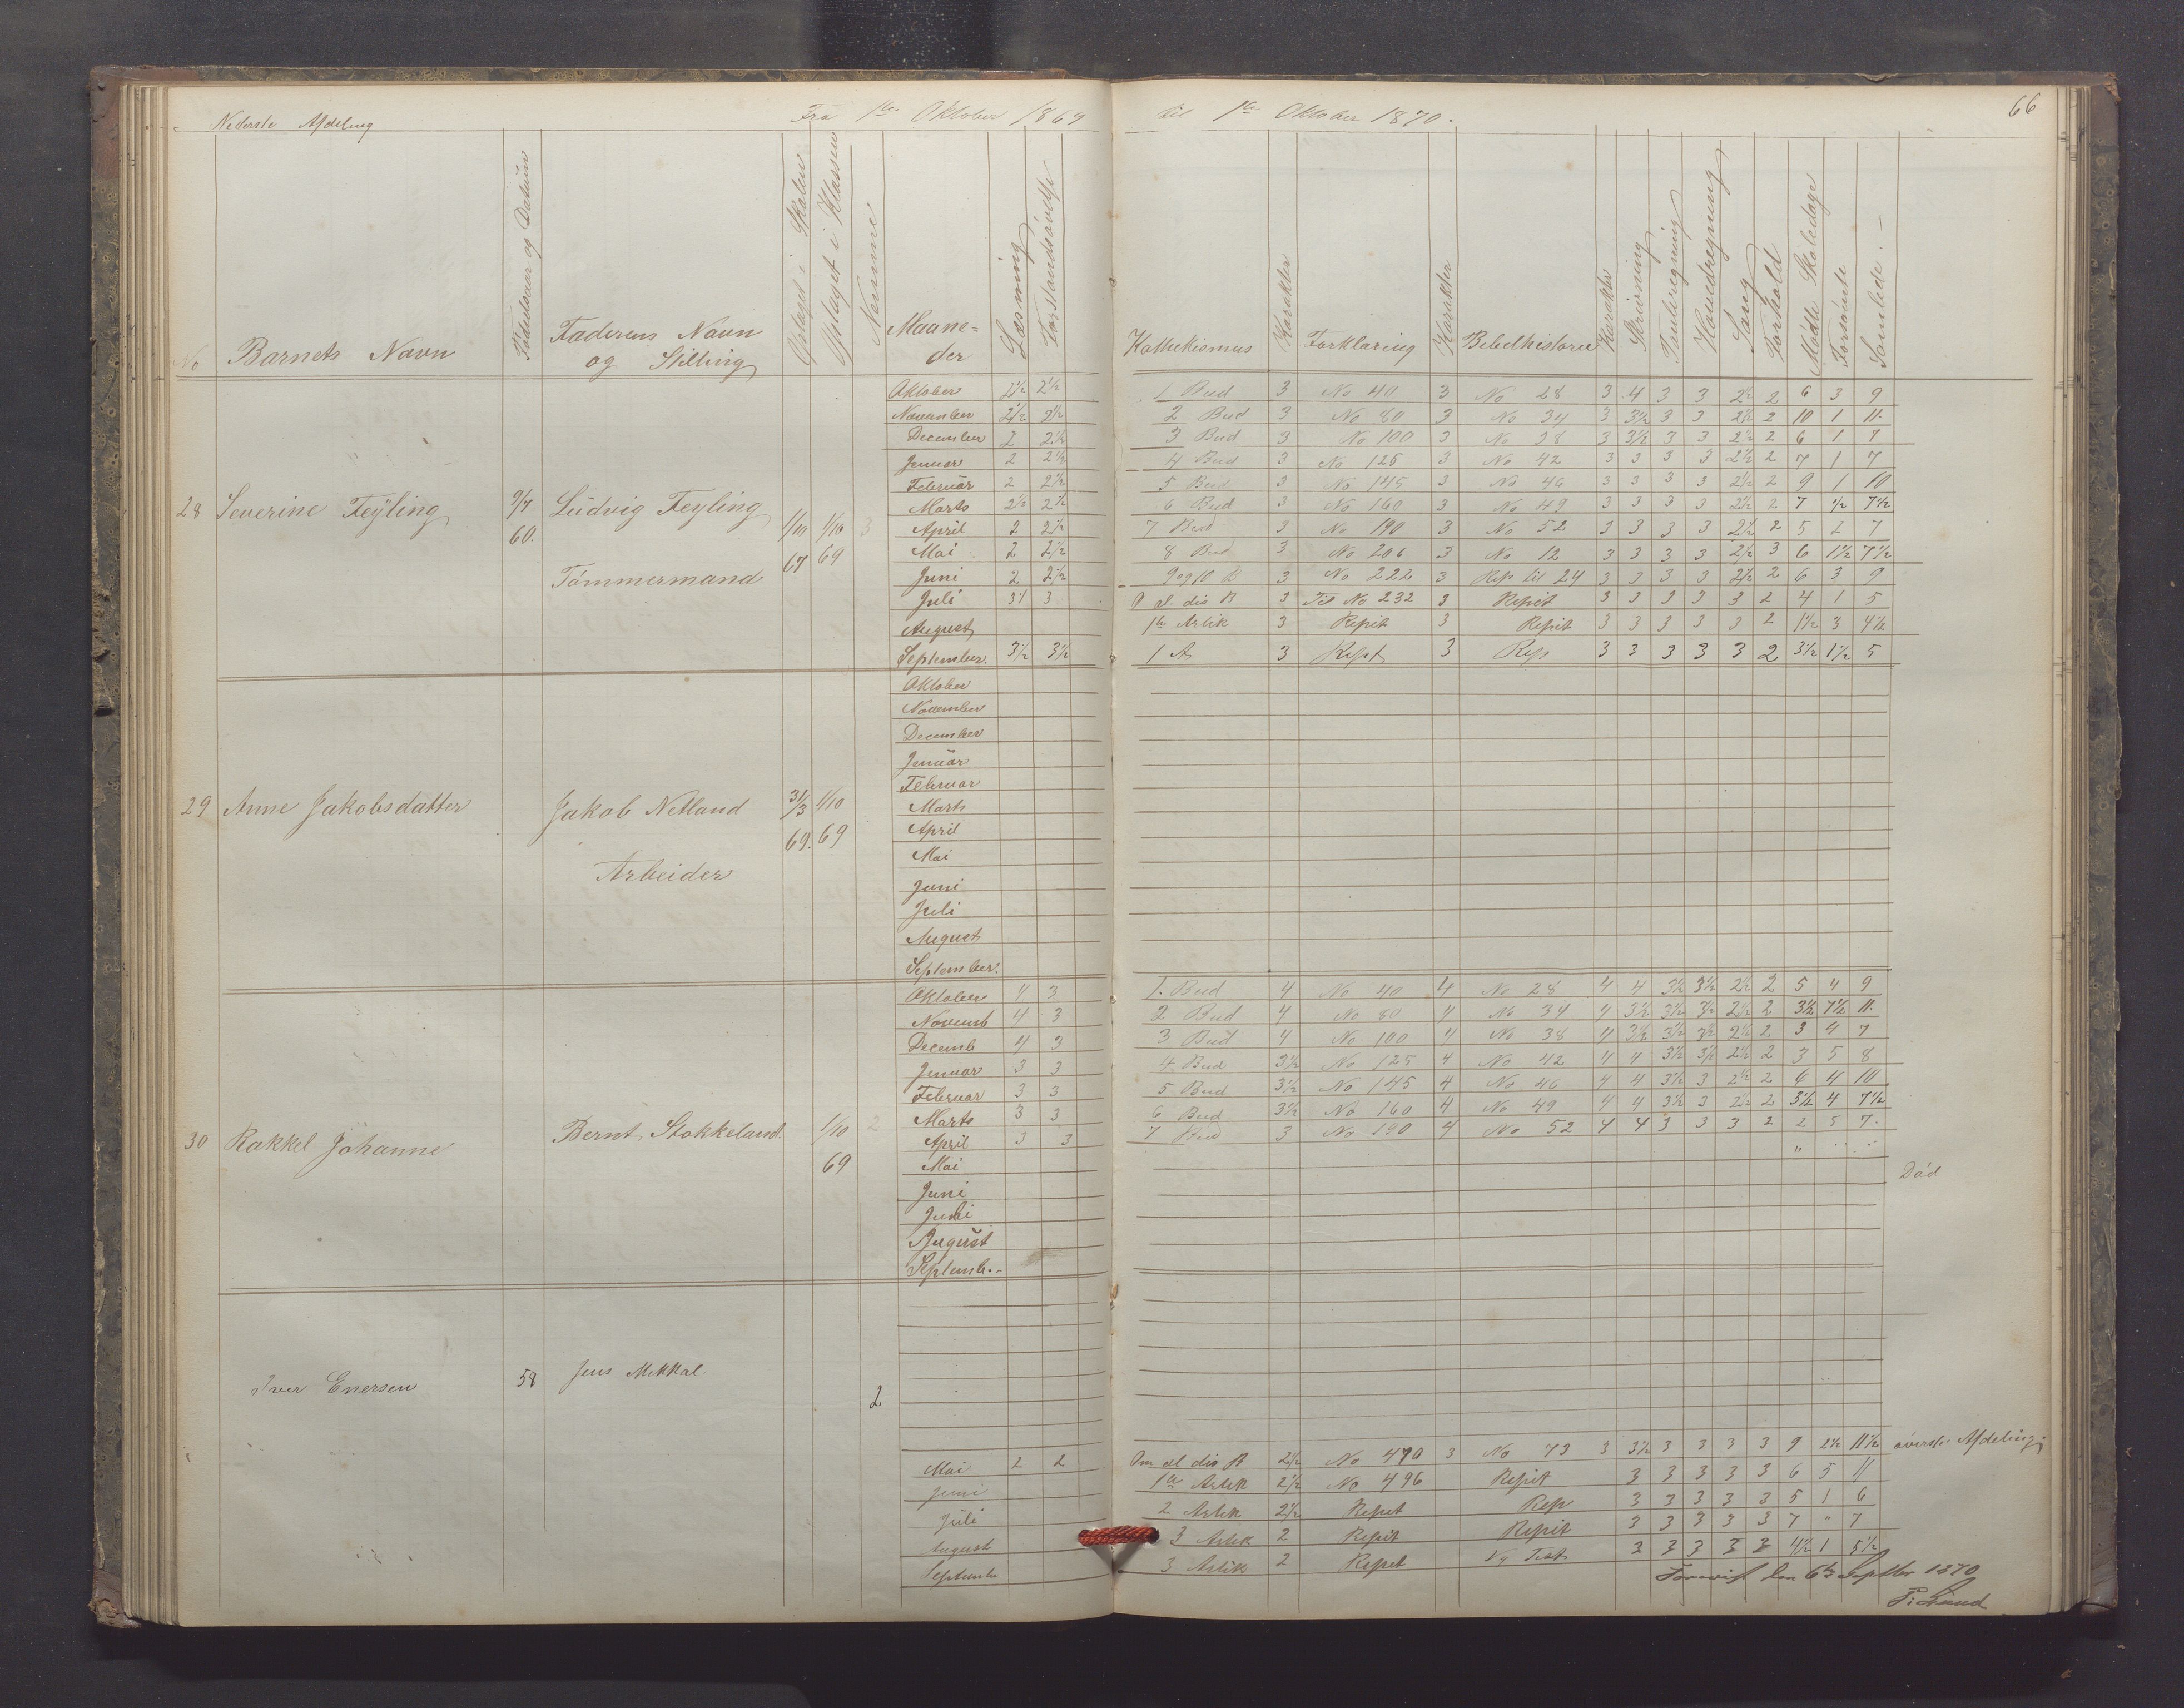 Nederste Afdeling Fra 1ste Oktober 1869 til 1ste Oktober 1870. 66
No Barnets Navn Fødselsaar og Datum Faderens Navn og Stilling Optaget i Skolen Optaget i Klassen Nemme Maaneder Læsning Forstandsøvelse Kathekismus Karakter Forklaring Karakter Bibelhistorie Karakter Skrivning Tavleregning Hovedregning Sang Forhold Mødte Skoledage Forsømte Samlede
28 Severine Feyling 9/7 60. Ludvig Feyling Tømmermand 1/10 67 1/10 69 3
Oktober 2½ 2½ 1 Bud 3 No 40 3 No 28 3 4 3 3 2½ 2 6 3 9
November 2½ 2½ 2 Bud 3 No 80 3 No 34 3 3½ 3 3 2½ 2 10 1 11.
December 2 2½ 3 Bud 3 No 100 3 No 38 3 3½ 3 3 2½ 2 6 1 7
Januar 2 2½ 4 Bud 3 No 125 3 No 42 3 3 3 3 2½ 2 7 1 7
Februar 2 2½ 5 Bud 3 No 145 3 No 46 3 3 3 3 2½ 2 9 1 10
Marts 2½ 2½ 6 Bud 3 No 160 3 No 49 3 3 3 3 2½ 2 7 ½ 7½
April 2 2½ 7 Bud 3 No 190 3 No 52 3 3 3 3 2½ 2 5 2 7
Mai 2 2½ 8 Bud 3 No 206 3 No 12 3 3 3 3 2½ 3 6 1½ 7½
Juni 2 2½ 9 og 10 B 3 No 222 3 Rep til 24 3 3 3 3 2½ 2 6 3 9
Juli 3 al dis B 3 Til No 232 3 Repet 3 3 3 3 3 2 4 1 5
August 1ste Artik 3 Repet 3 Repet 3 3 3 3 3 2 1½ 3 4½
September. 3½ 3½ 1 A 3 Rept 3 Rep 3 3 3 3 3 2 3½ 1½ 5
29 Anne Jakobsdatter Jakob Netland Arbeider 31/3 69. 1/10 69
Oktober
November
December
Januar
Februar
Marts
April
Mai
Juni
Juli
August
September.
30 Rakkel Johanne Bernt Stokkeland. 1/10 69 2
Oktober 4 3 1. Bud 4 No 40 4 No 28 4 4 3½ 3½ 2½ 2 5 4 9
Novemb 4 3 2 Bud 4 No 80 4 No 34 4 3½ 3½ 3½ 2½ 2 3½ 7½ 11.
Decemb 4 3 3 Bud 4 No 100 4 No 38 4 3½ 3½ 3½ 2½ 2 3 4 7
Januar 3 3 4 Bud 3½ No 125 4 No 42 4 4 3½ 3½ 2½ 2 3 5 8
Februar 3 3 5 Bud 3½ No 145 4 No 46 4 4 3½ 3 2½ 2 6 4 10
Marts 3 3 6 Bud 3½ No 160 4 No 49 4 4 3½ 3 2½ 2 3½ 4 7½
April 3 3 7 Bud 3 No 190 4 No 52 4 4 3 3 3 2 2 5 7.
Mai Død
Juni
Juli
August
Septemb.
Iver Enersen 58 Jens Mekkal 2
Mai 2 2 Om al dis B 2½ No 490 3 No 73 3 3½ 3 3 3 3 9 2½ 11½ øverste Afdeling
Juni 1ste Artik 2½ No 496 Repet 3 3 3 3 3 6 5 11
Juli 2 Artik 2½ Repet Rep 3 3 3 3 3 5 1 6
August 3 Artik 2 Repet Repet 3 3 3 3 3 7 " 7
Septemb 3 Artik 2 Repet Ny Test 3 3 3 3 3 4½ 1 5½
Forevist den 6te Septbr 1870
Lund